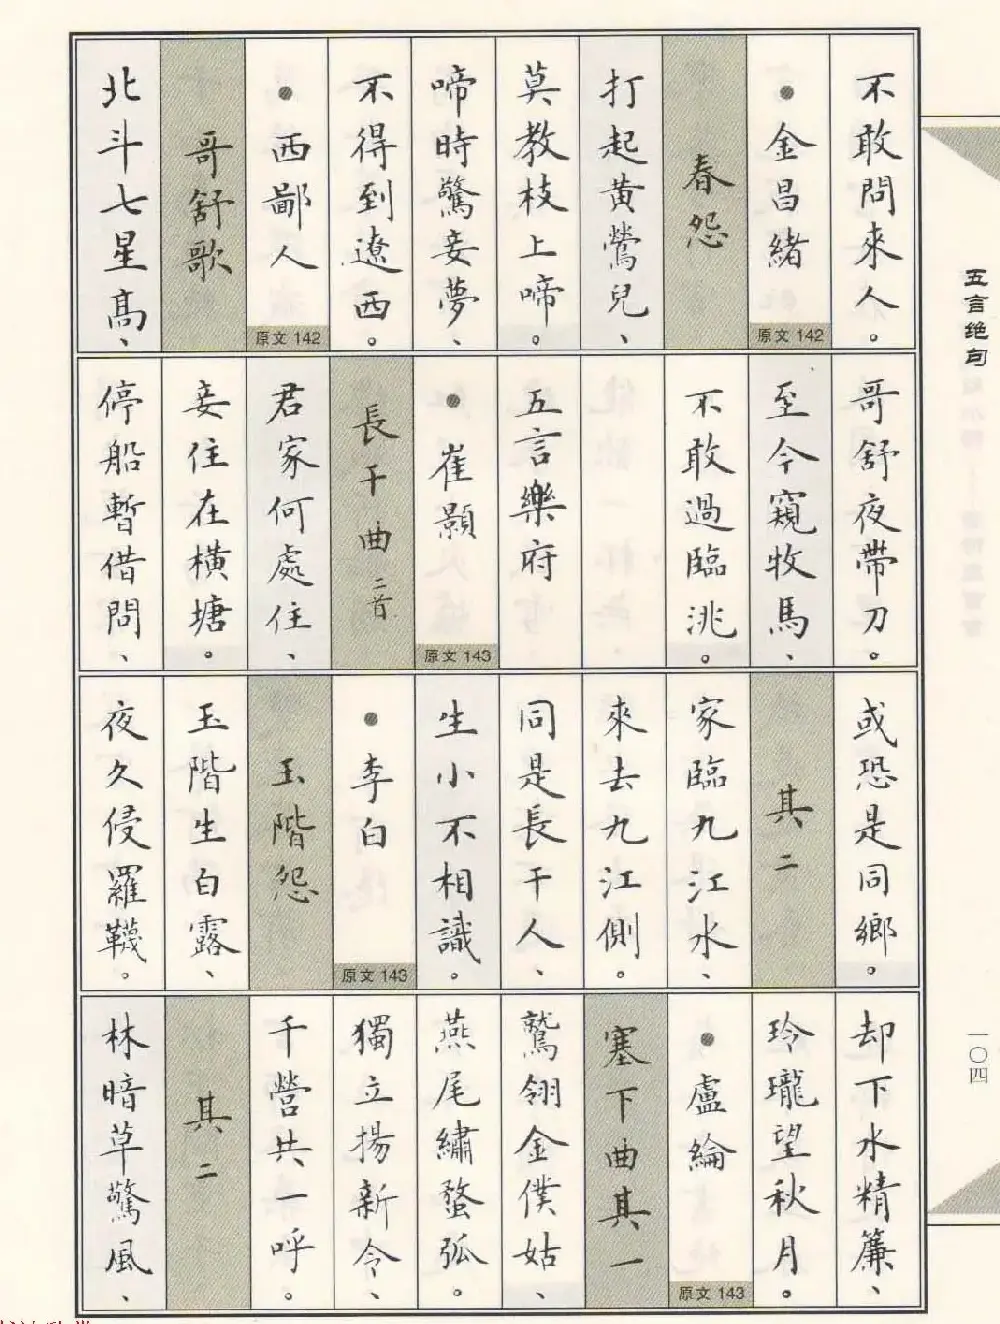 不敢問來人。
●金昌緒
原文 142
春怨
打起黄鶯兒、
莫教枝上啼。
啼時驚妾夢、
不得到遼西。
●西鄙人
原文 142
哥舒歌
北斗七星高、
哥舒夜帶刀。
至今窺牧馬、
不敢過臨洮。
五言樂府
●崔顥
原文 143
長干曲 二首
君家何處住、
妾住在橫塘。
停船暫借問、
或恐是同鄉。
其二
家臨九江水、
來去九江側。
同是長干人、
生小不相識。
●李白
原文 143
玉階怨
玉階生白露、
夜久侵羅韈。
却下水精簾、
玲瓏望秋月。
●盧綸
原文 143
塞下曲其一
鷲翎金僕姑、
燕尾繡蝥弧。
獨立揚新令、
千營共一呼。
其二
林暗草驚風、
五言绝句
一〇四